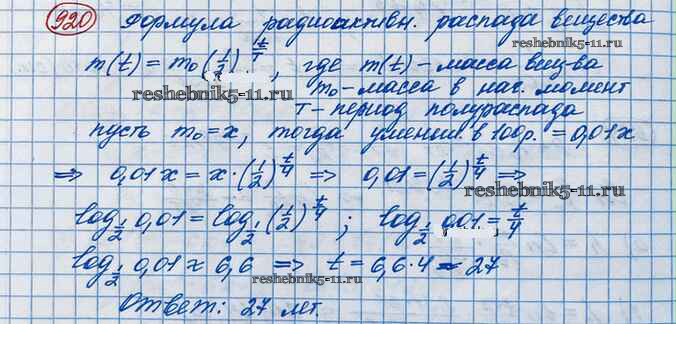 920 Формула радиоактивн. распада вещества
reshebnik5-11.ru
m(t) = m₀(1/2)^(t/T), где m(t) - масса вещ-ва
reshebnik5-11.ru
m₀ - масса в нач. момент
T - период полураспада
пусть m₀ = x, тогда уменьш. в 100 р. = 0,01x
⇒ 0,01x = x·(1/2)^(t/4) ⇒ 0,01 = (1/2)^(t/4) ⇒
reshebnik5-11.ru
log_(1/2) 0,01 = log_(1/2) (1/2)^(t/4); log_(1/2) 0,01 = t/4
log_(1/2) 0,01 ≈ 6,6 ⇒ t = 6,6·4 ≈ 27
reshebnik5-11.ru
Ответ: 27 лет.